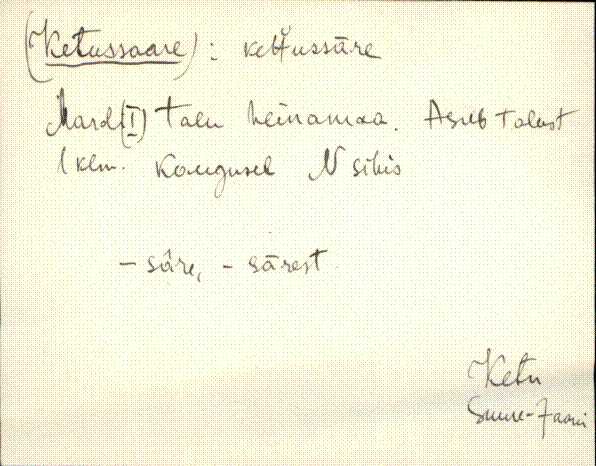 (Ketussaare): kettussāre
Mard(I) talu heinamaa. Asub talust
1 klm. kaugusel N sihis
- sāre, - sārest
Ketu
Suure-Jaani